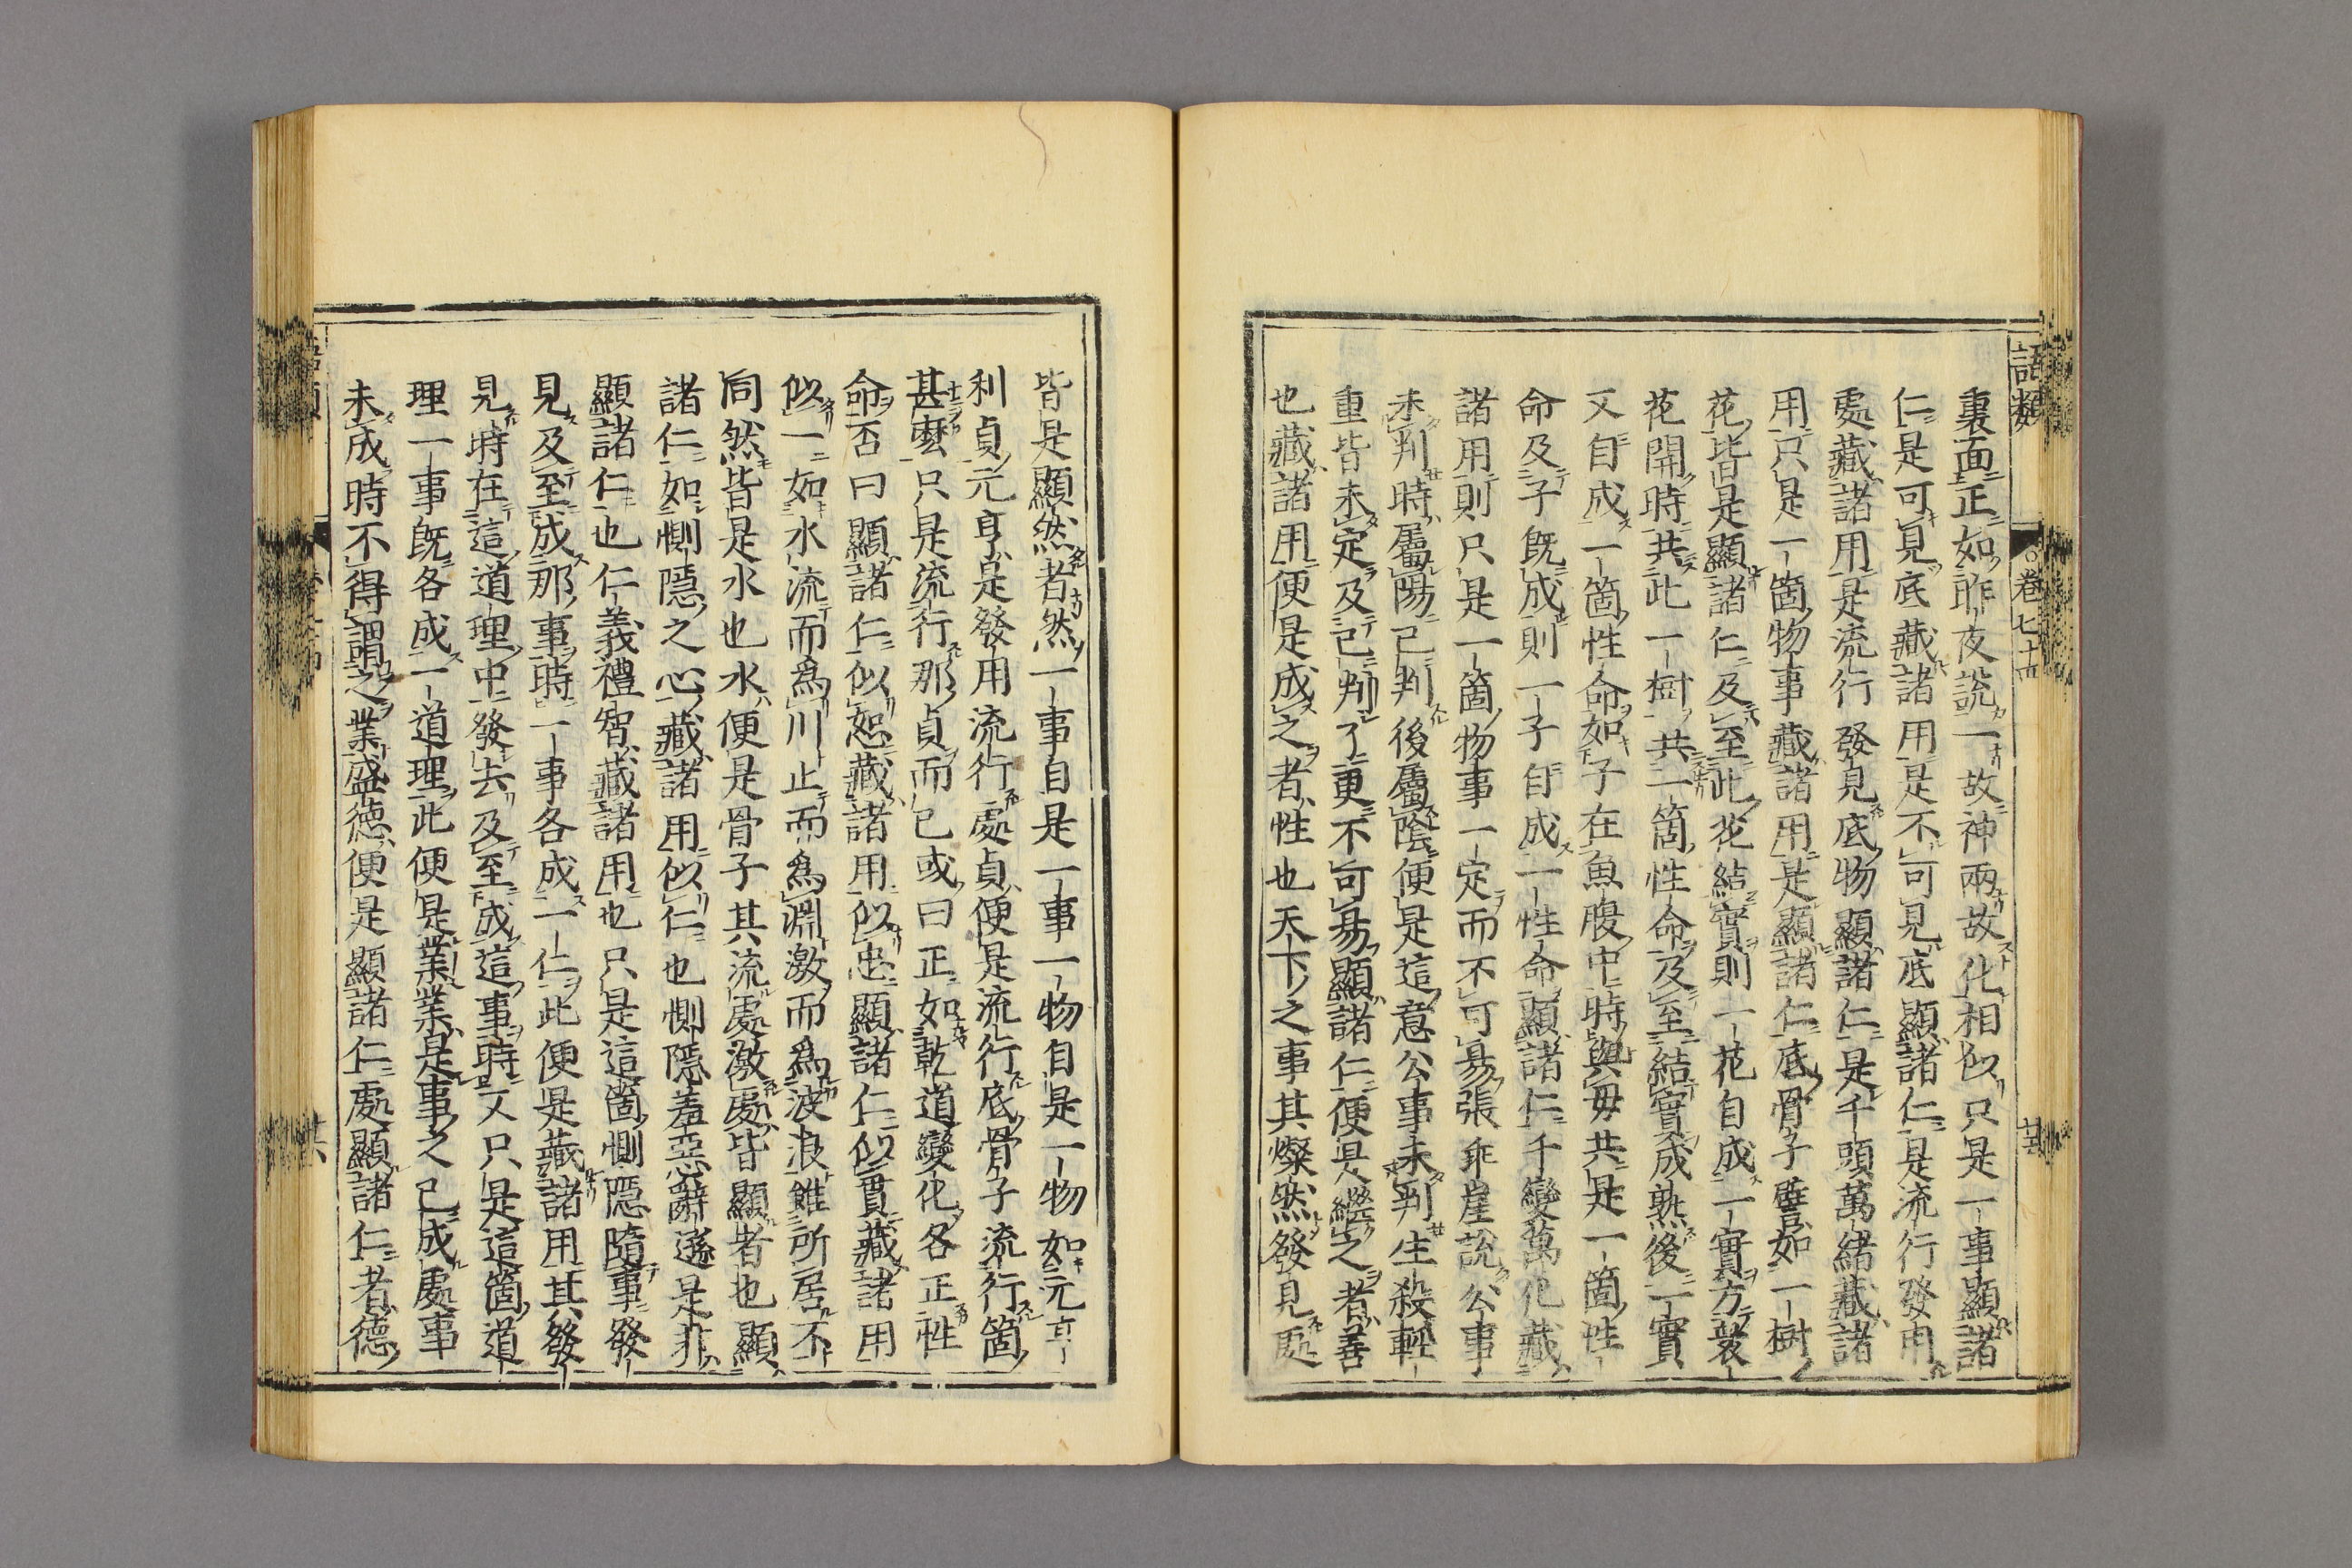 語類 卷七十四 廿五
裏面正如昨夜說一故神兩故化相似只是一事顯諸
仁是可見底藏諸用是不可見底顯諸仁是流行發用
處藏諸用是流行發見底物顯諸仁是千頭萬緒藏諸
用只是一箇物事藏諸用是顯諸仁底骨子譬如一樹
花皆是顯諸仁及至此花結實則一花自成一實方衆
花開時共此一樹共一箇性命及至結實成熟後一實
又自成一箇性命如子在魚腹中時與母共是一箇性
命及子既成則一子自成一性命顯諸仁千變萬化藏
諸用則只是一箇物事一定而不可易張乖崖說公事
未判時屬陽已判後屬陰便是這意公事未判生殺輕
重皆未定及已判了更不可易顯諸仁便是繼之者善
也藏諸用便是成之者性也天下之事其燦然發見處
皆是顯然者然一事自是一事一物自是一物如元亨
利貞元亨是發用流行處貞便是流行底骨子流行箇
甚麼只是流行那貞而已或曰正如乾道變化各正性
命否曰顯諸仁似恕藏諸用似忠顯諸仁似貫藏諸用
似一如水流而爲川止而爲淵激而爲波浪雖所居不
同然皆是水也水便是骨子其流處激處皆顯者也顯
諸仁如惻隱之心藏諸用似仁也惻隱羞惡辭遜是非
顯諸仁也仁義禮智藏諸用也只是這箇惻隱隨事發
見及至成那事時一事各成一仁此便是藏諸用其發
見時在這道理中發去及至成這事時又只是這箇道
理一事既各成一道理此便是業業是事之已成處事
未成時不得謂之業盛德便是顯諸仁處顯諸仁者德